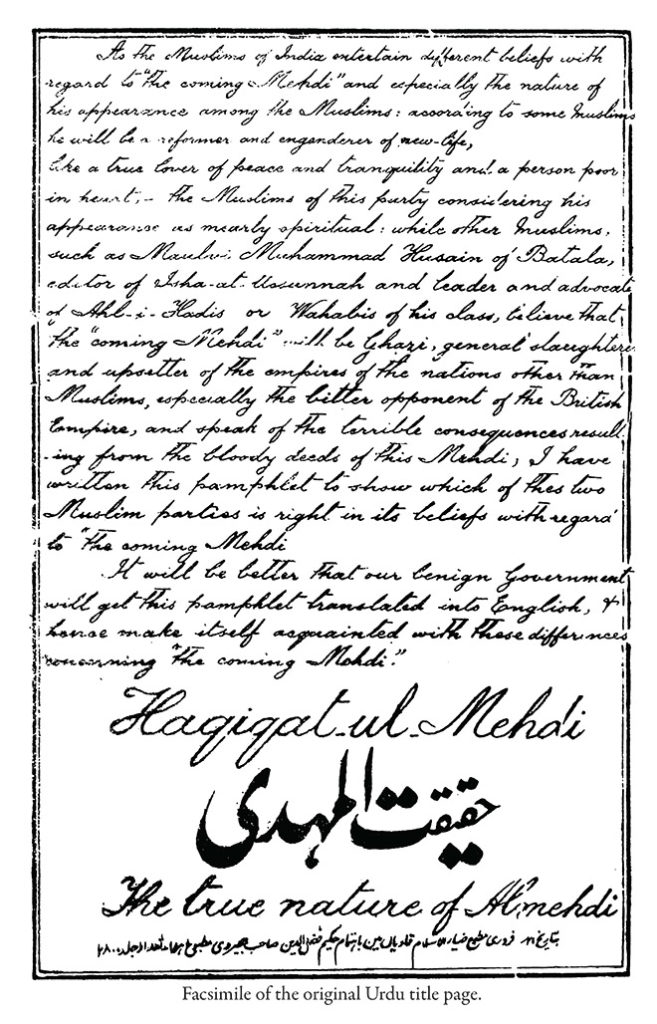 As the Muslims of India entertain different beliefs with
regard to "the coming Mehdi" and especially the nature of
his appearance among the Muslims: according to some Muslims
he will be a reformer and engenderer of new-life,
like a true lover of peace and tranquility and a person poor
in heart, - the Muslims of this party considering his
appearance as mearly spiritual: while other Muslims,
such as Maulvi Muhammad Husain of Batala,
editor of Isha-at-Ussunnah and leader and advocate
of Ahl-i-Hadis or Wahabis of his class, believe that
"the "coming Mehdi" will be Ghazi, general slaughterer
and upsetter of the empires of the nations other than
Muslims, especially the bitter opponent of the British
Empire, and speak of the terrible consequences result-
-ing from the bloody deeds of this Mehdi; I have
written this pamphlet to show which of thes two
Muslim parties is right in its beliefs with regard
to "the coming Mehdi
It will be better that our benign Government
will get this pamphlet translated into English, &
hence make itself acquainted with these differences
concerning "the coming Mehdi."
Haqiqat-ul-Mehdi
حقیقت المہدی
The true nature of Almehdi
فروری مطبع ضیاء الاسلام قادیان میں باہتمام حکیم فضل الدین صاحب بھیروی
Facsimile of the original Urdu title page.